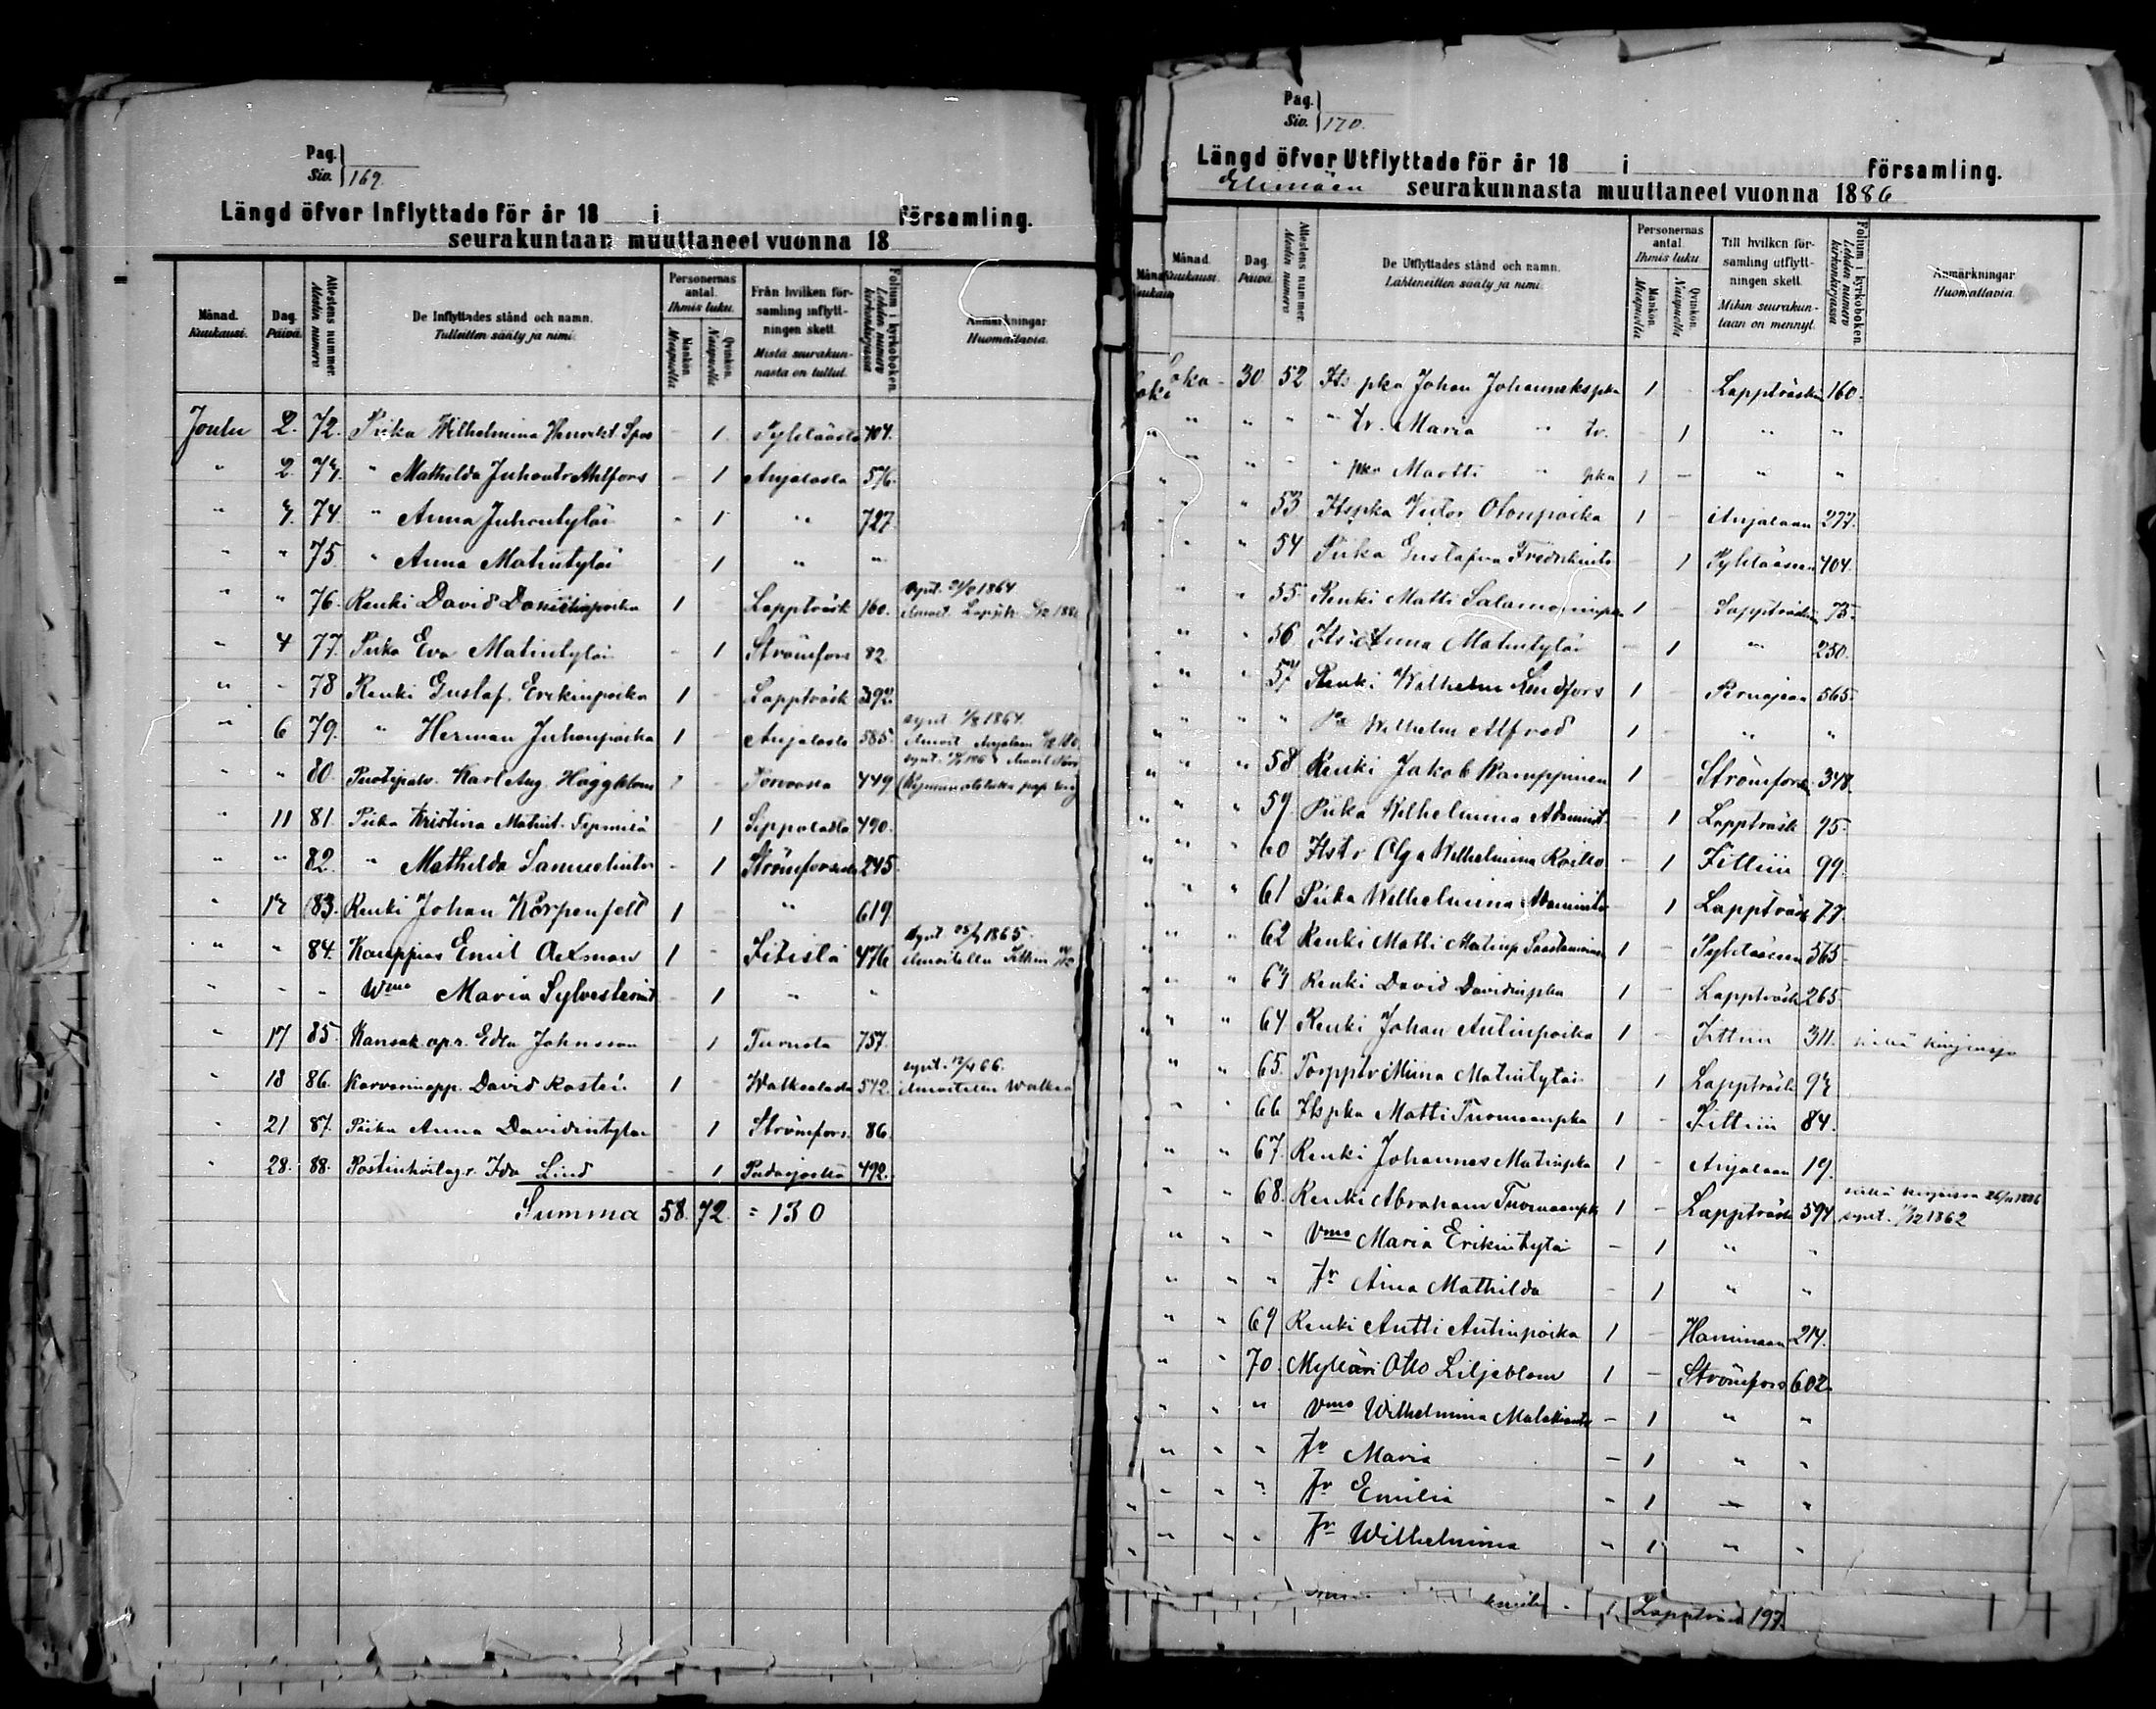 Pag.
Siv. 169.
Längd öfver Inflyttade för år 18 i församling.
seurakuntaan muuttaneet vuonna 18
Månad. Kuukausi.
Dag. Päivä.
Attestens nummer. Alestin numero
De Inflyttades stånd och namn.
Tulleitten sääty ja nimi.
Personernas antal. Ihmis luku.
Mankön. Miespuolia
Qvinkön. Naispuolia.
Från hvilken församling inflyttningen skett.
Mistä seurakunnasta on tullut.
Folium i kyrkoboken. Lehden numero kirkonkirjassa
Anmärkningar
Huomattavia.
Joulu 2. 72. Piika Wilhelmina - 1. Pyhtäästä 404.
" 2. 73. " Mathilda Juhontr Ahlfors - 1 Anjalasta 576.
" 3. 74. " Anna Juhontytöi - 1 " 727
" " 75. " Anna Matintytöi 1 " "
" " 76. Renki David Danielinpoika 1 Lappträsk 160. synt. 1864
" 4 77. Piika Eva Matintytöi - 1 Strömfors 82.
" - 78 Renki Gustaf Erikinpoika 1 - Lappträsk 392.
" 6 79. " Herman Juhonpoika 1 - Anjalasta 585. synt. 1864.
" " 80. Karl Aug. Häggblom 1 - Porvoosta 449
" 11 81. Piika Kristina Matint. - 1 Sippolasta 490.
" " 82. " Mathilda Samuelintr - 1 Strömforsista 245.
" 13 83. Renki Johan Körpenfelt 1 - " 619.
" " 84. Kauppias Emil Axman 1 - Iitistä 476 synt. 25/ 1865.
" " " Wmo Maria Sylvesterint - 1 " "
" 17 85. Kansak. op:r. Edla Johnsson - 1 Turusta 757.
" 18 86. Karvarinopp. David 1 - Walkealasta 572. synt. 66.
" 21 87. Piika Anna Davidintytär - 1 Strömfors. 86.
" 28. 88. Ida Lind - 1 Padasjoelta 492.
Summa 58. 72. = 130
Pag.
Siv. 170.
Längd öfver Utflyttade för år 18 i församling.
Elimäen seurakunnasta muuttaneet vuonna 1886
Månad. Kuukausi.
Dag. Päivä.
Attestens nummer. Alestin numero
De Utflyttades stånd och namn.
Lähteneitten sääty ja nimi.
Personernas antal. Ihmis luku.
Mankön. Miespuolia
Qvinkön. Naispuolia.
Till hvilken församling utflyttningen skett.
Mihin seurakuntaan on mennyt.
Folium i kyrkoboken. Lehden numero kirkonkirjassa
Anmärkningar
Huomattavia.
Loka- 30 52 Its pka Johan Johannekspka 1 - Lappträskin 160.
" " " " tr. Maria " tr. - 1 " "
" " " " pka Martti " pka 1 - " "
" " 53 Itspka Victor Otonpoika 1 - Anjalaan 277.
" " 54 Piika Gustafva Fredrikintr 1 Pyhtääseen 404.
" " 55. Renki Matti Salamoninpka 1 - Lappträskin 73.
" " 56 Its: Anna Matintytöi - 1 " 250.
" " 57 Renki Wilhelm Lindfors 1 - Pernajaan 565.
" " " Pa Wilhelm Alfred 1 - " "
" " 58 Renki Jakob Kamppinen 1 - Strömfors 348.
" " 59. Piika Wilhelmina Adamint. - 1 Lappträsk 95.
" " 60 Itstr Olga Wilhelmina - 1 Iittiin 99.
" " 61 Piika Wilhelmina Adamintr 1 Lappträsk 77.
" " 62 Renki Matti Matinp. 1 - Pyhtääseen 565.
" " 63 Renki David Davidinpka 1 - Lappträsk 265.
" " 64 Renki Johan Antinpoika 1 - Iittiin 311.
" " 65. Torpptr Miina Matintytöi - 1 Lappträsk 93.
" " 66 Itspka Matti Tuomaanpka 1 - Iittiin 84.
" " 67. Renki Johannes Matinpka 1 - Anjalaan 19.
" " 68. Renki Abraham Tuomaanpk 1 - Lappträsk 594 synt. 1862
" " " Vmo Maria Erikintytöi - 1 " "
" " " Tr Aina Mathilda - 1 " "
" " 69 Renki Antti Antinpoika 1 - Haminaan 214.
" " 70. Mylläri Otto Liljeblom 1 - Strömfors 602.
" " " Vmo Wilhelmina - 1 " "
" " " Tr Maria - 1 " "
" " " Tr Emilia - 1 " "
" " " Tr Wilhelmina " 1 " "
- 1 Lappträsk 197.